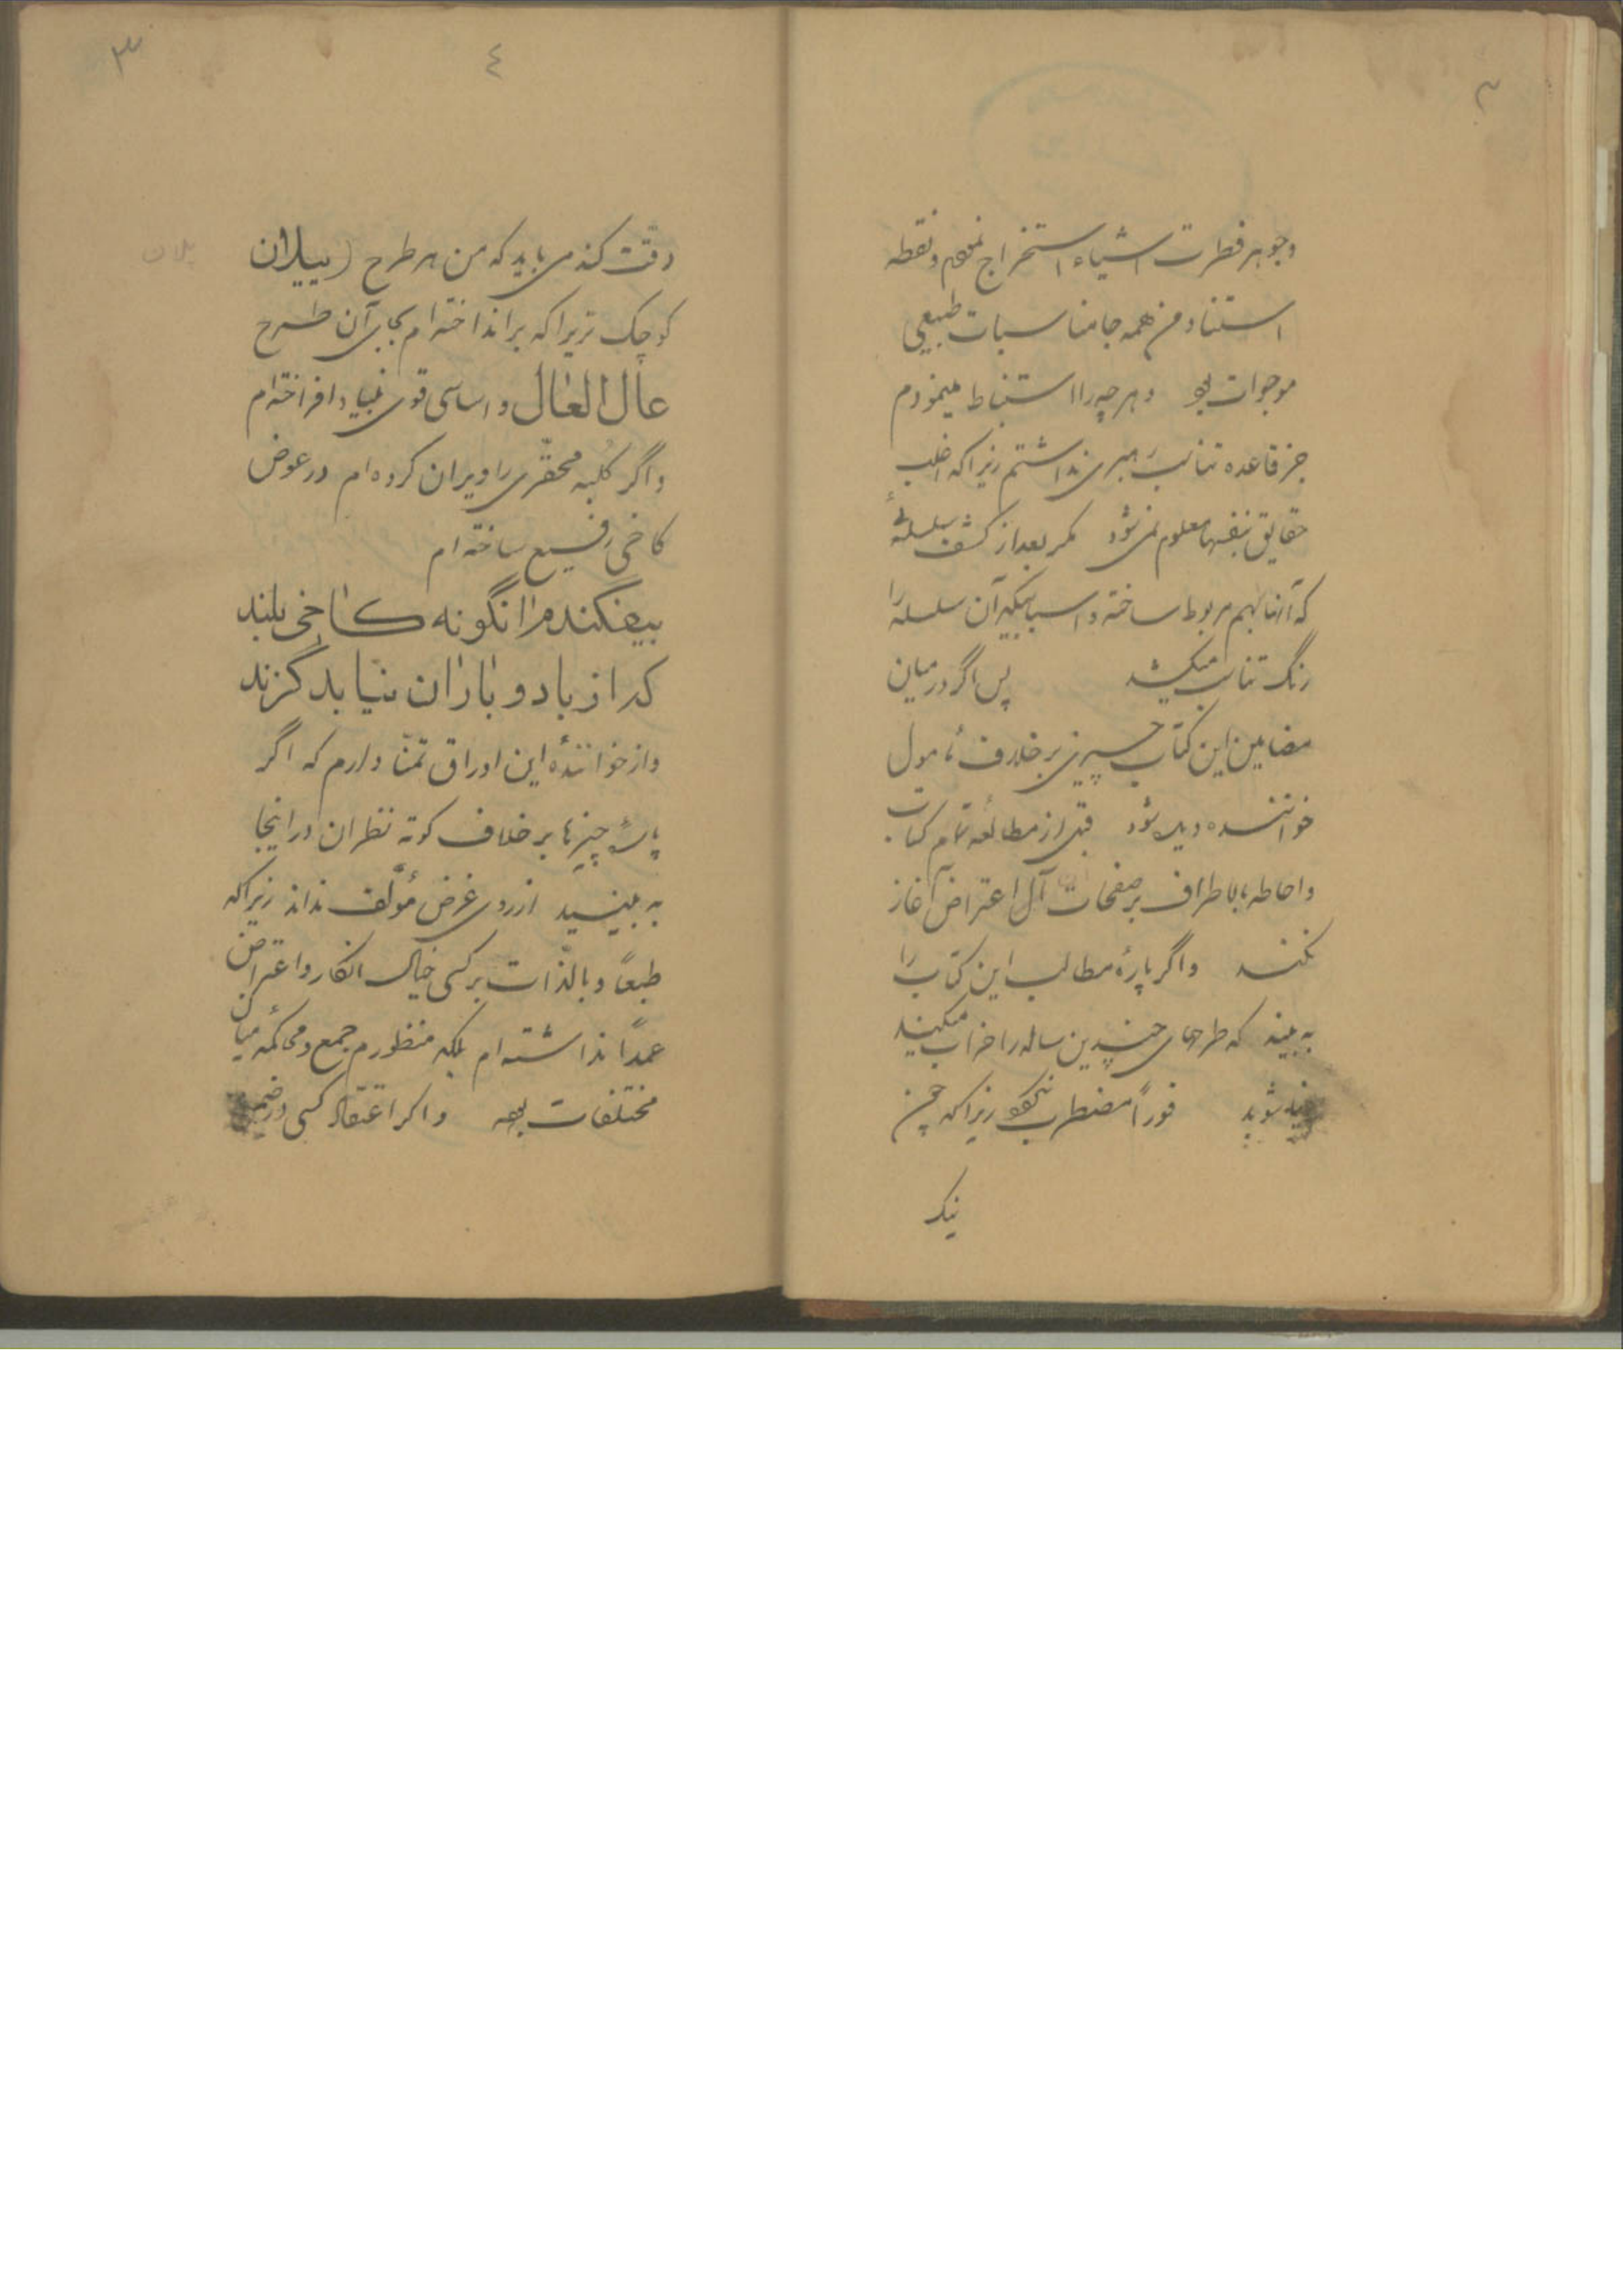 وجوهر فطرت اشیاء استخراج نموده و نقطه
استناد من همه جا مناسبات طبیعی
موجودات بود و هر چه را استنباط مینمودم
جز قاعده تناسب رهبری نداشتم زیرا که اغلب
حقایق بنفسها معلوم نمی شود مگر بعد از کشف سلسلهٔ
که آنها را بهم مربوط ساخته و اسبابیکه آن سلسله را
رنگ تناسب میبخشد پس اگر در میان
مضامین این کتاب چیزی بر خلاف مأمول
خواننده دیده شود قبل از مطالعه تمام کتاب
و احاطه باطراف بر صفحات آن اعتراض آغاز
نکنند و اگر پارهٔ مطالب این کتاب را
به بینند که طرحهای چندین ساله را خراب میکند
شوید فوراً مضطرب نگردد زیرا که چون
نیک
۴
۳
دقت کند می باید که من هر طرح (پیلان
کوچک تریرا که برانداخته ام بجای آن طرح
عال العال و اساسی قوی بنیاد افراخته ام
و اگر کلبه محقّری را ویران کرده ام در عوض
کاخی رفیع ساخته ام
بیفکندم انگونه کاخی بلند
که از باد و باران نیابد گزند
و از خوانندهٔ این اوراق تمنّا دارم که اگر
پارهٔ چیزها بر خلاف کوته نظران در اینجا
به بینید از روی غرض مؤلّف نداند زیرا که
طبعاً و بالذّات بر کسی خیال انکار و اعتراض
عمداً نداشته ام بلکه منظورم جمع و محاکمهٔ میان
مختلفات بوده و اگر اعتقاد کسی در ضمن
پلان